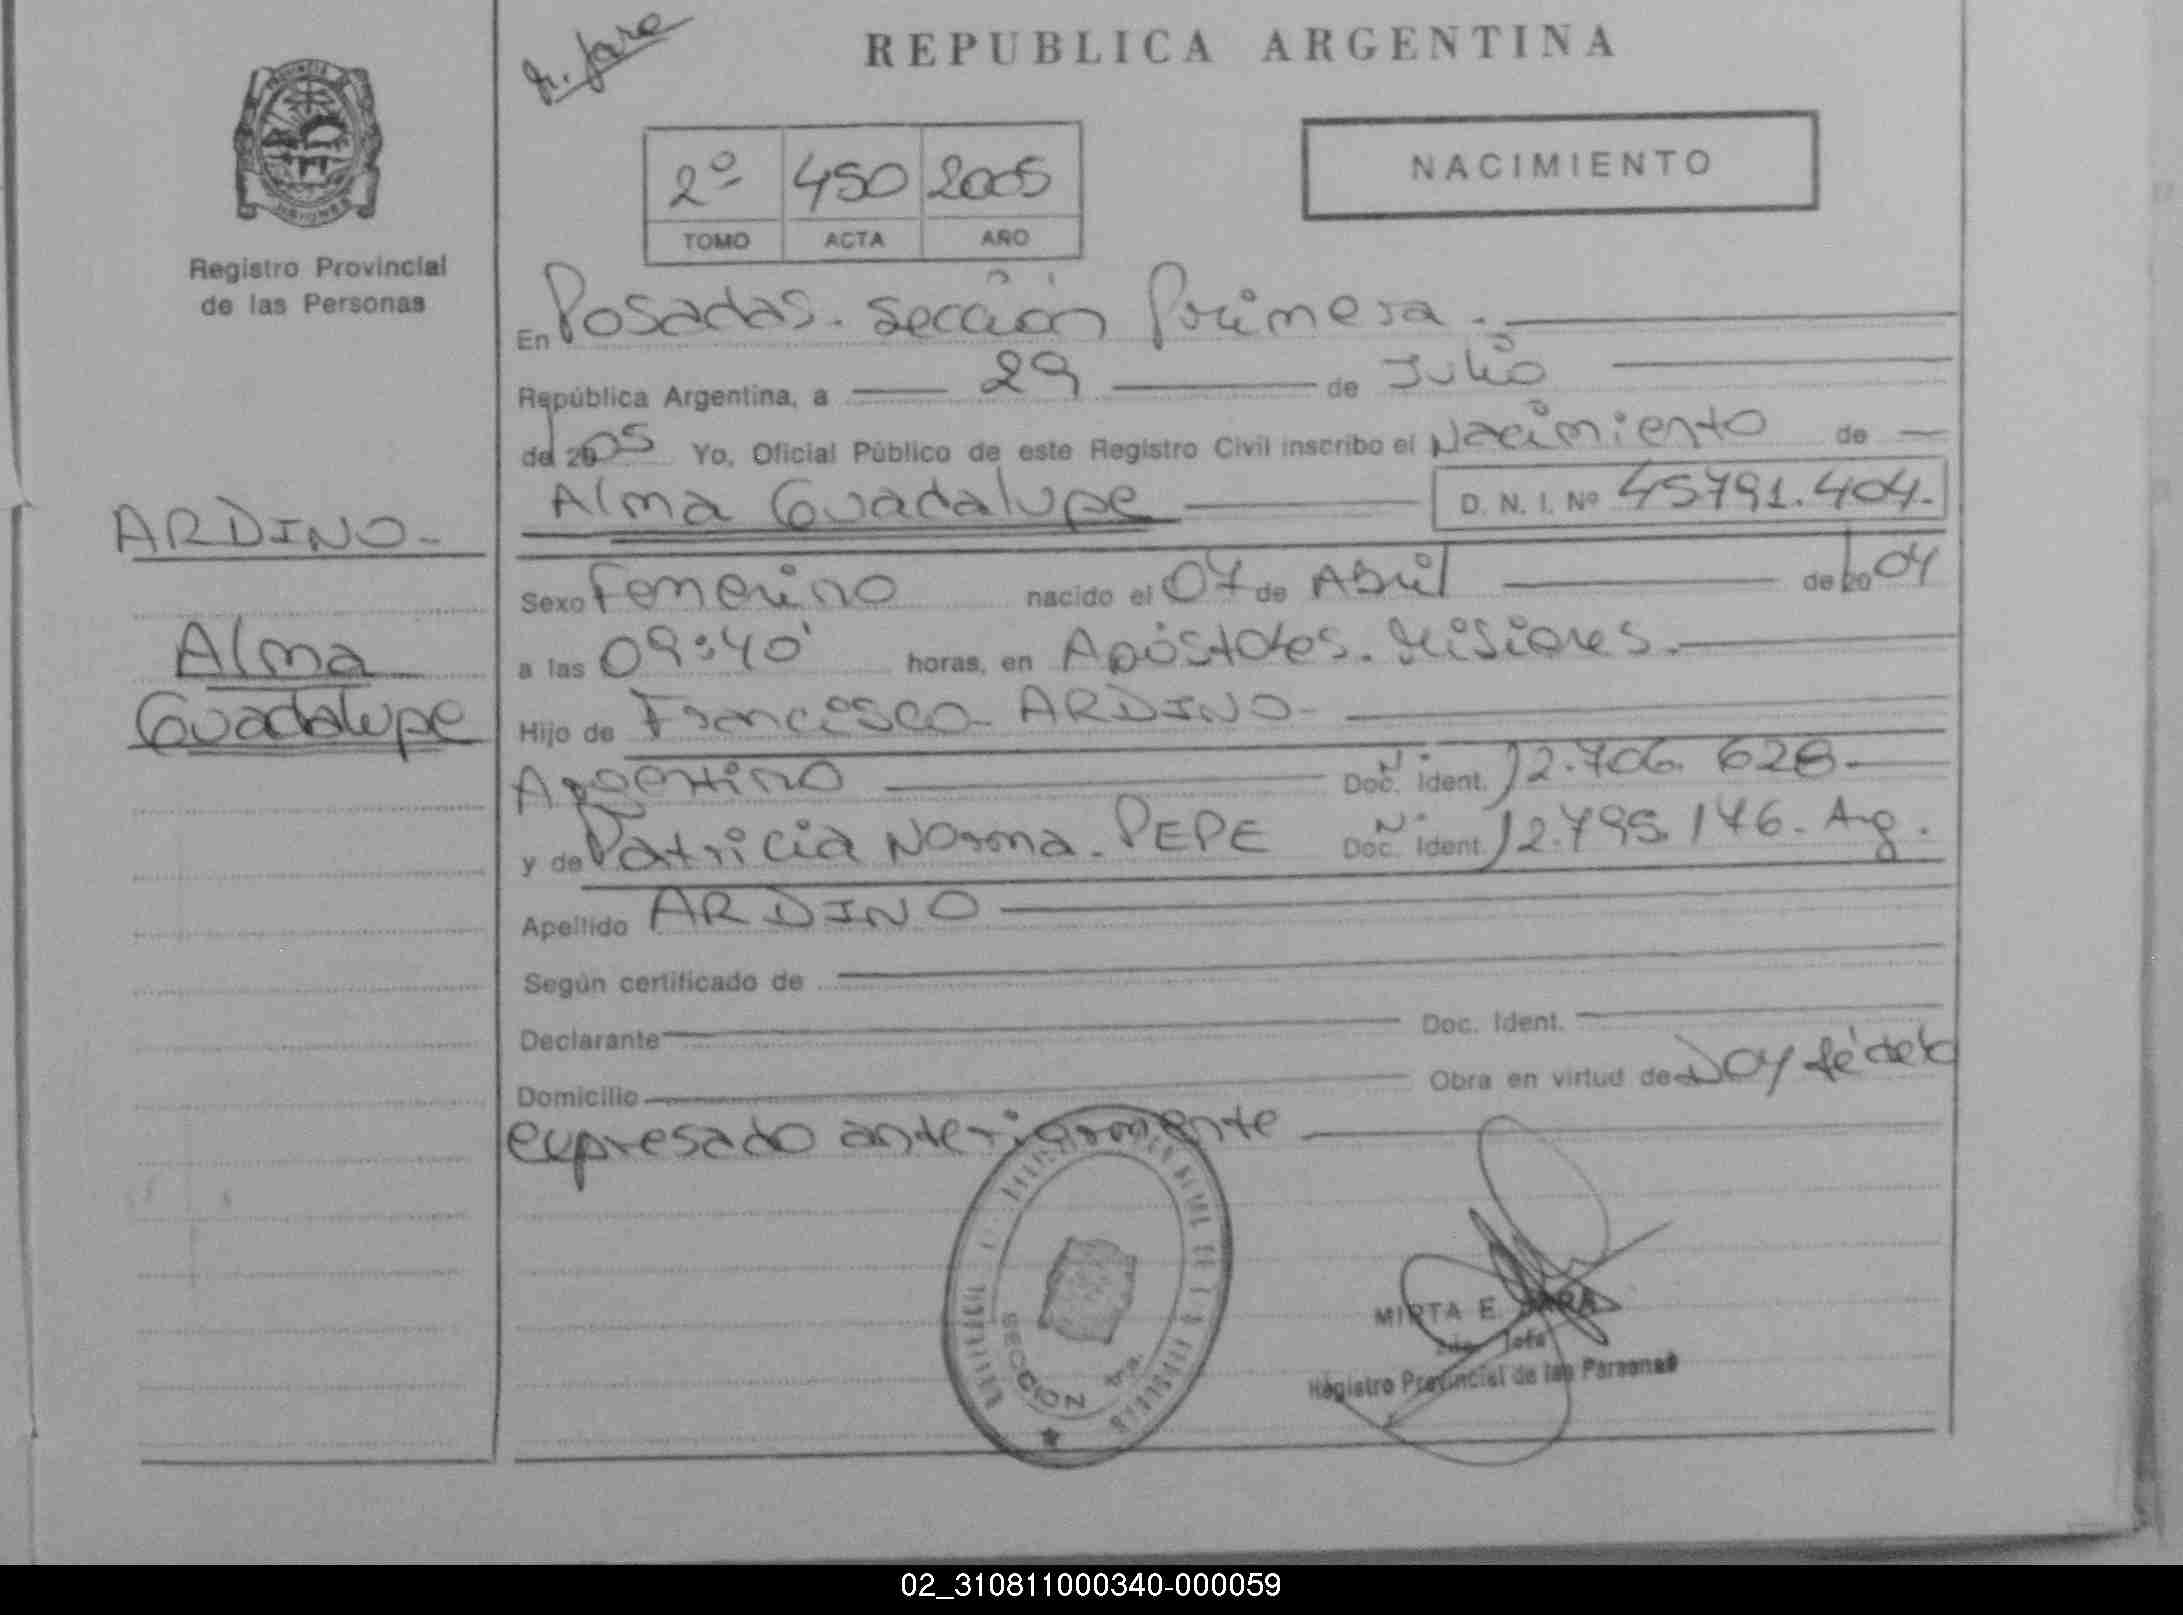 REPUBLICA ARGENTINA
2º 450 2005
TOMO ACTA AÑO
NACIMIENTO
MISIONES
Registro Provincial
de las Personas
En Posadas. Sección Primera.
República Argentina, a 29 de Julio
del 2005 Yo, Oficial Público de este Registro Civil inscribo el Nacimiento de
Alma Guadalupe D. N. I. Nº 45791.404.
ARDINO
Alma
Guadalupe
Sexo Femenino nacido el 07 de Abril de 2004
a las 09:40' horas, en Apóstoles. Misiones.
Hijo de Francisco ARDINO
Argentino Doc. Ident. 12.706.628
y de Patricia Norma PEPE Doc. Ident. 12.795.146. Arg.
Apellido ARDINO
Según certificado de
Declarante Doc. Ident.
Domicilio Obra en virtud de Doy fé de lo
expresado anteriormente
SECCION 1ra.
MIRTA E. JARA
Registro Provincial de las Personas
02_310811000340-000059